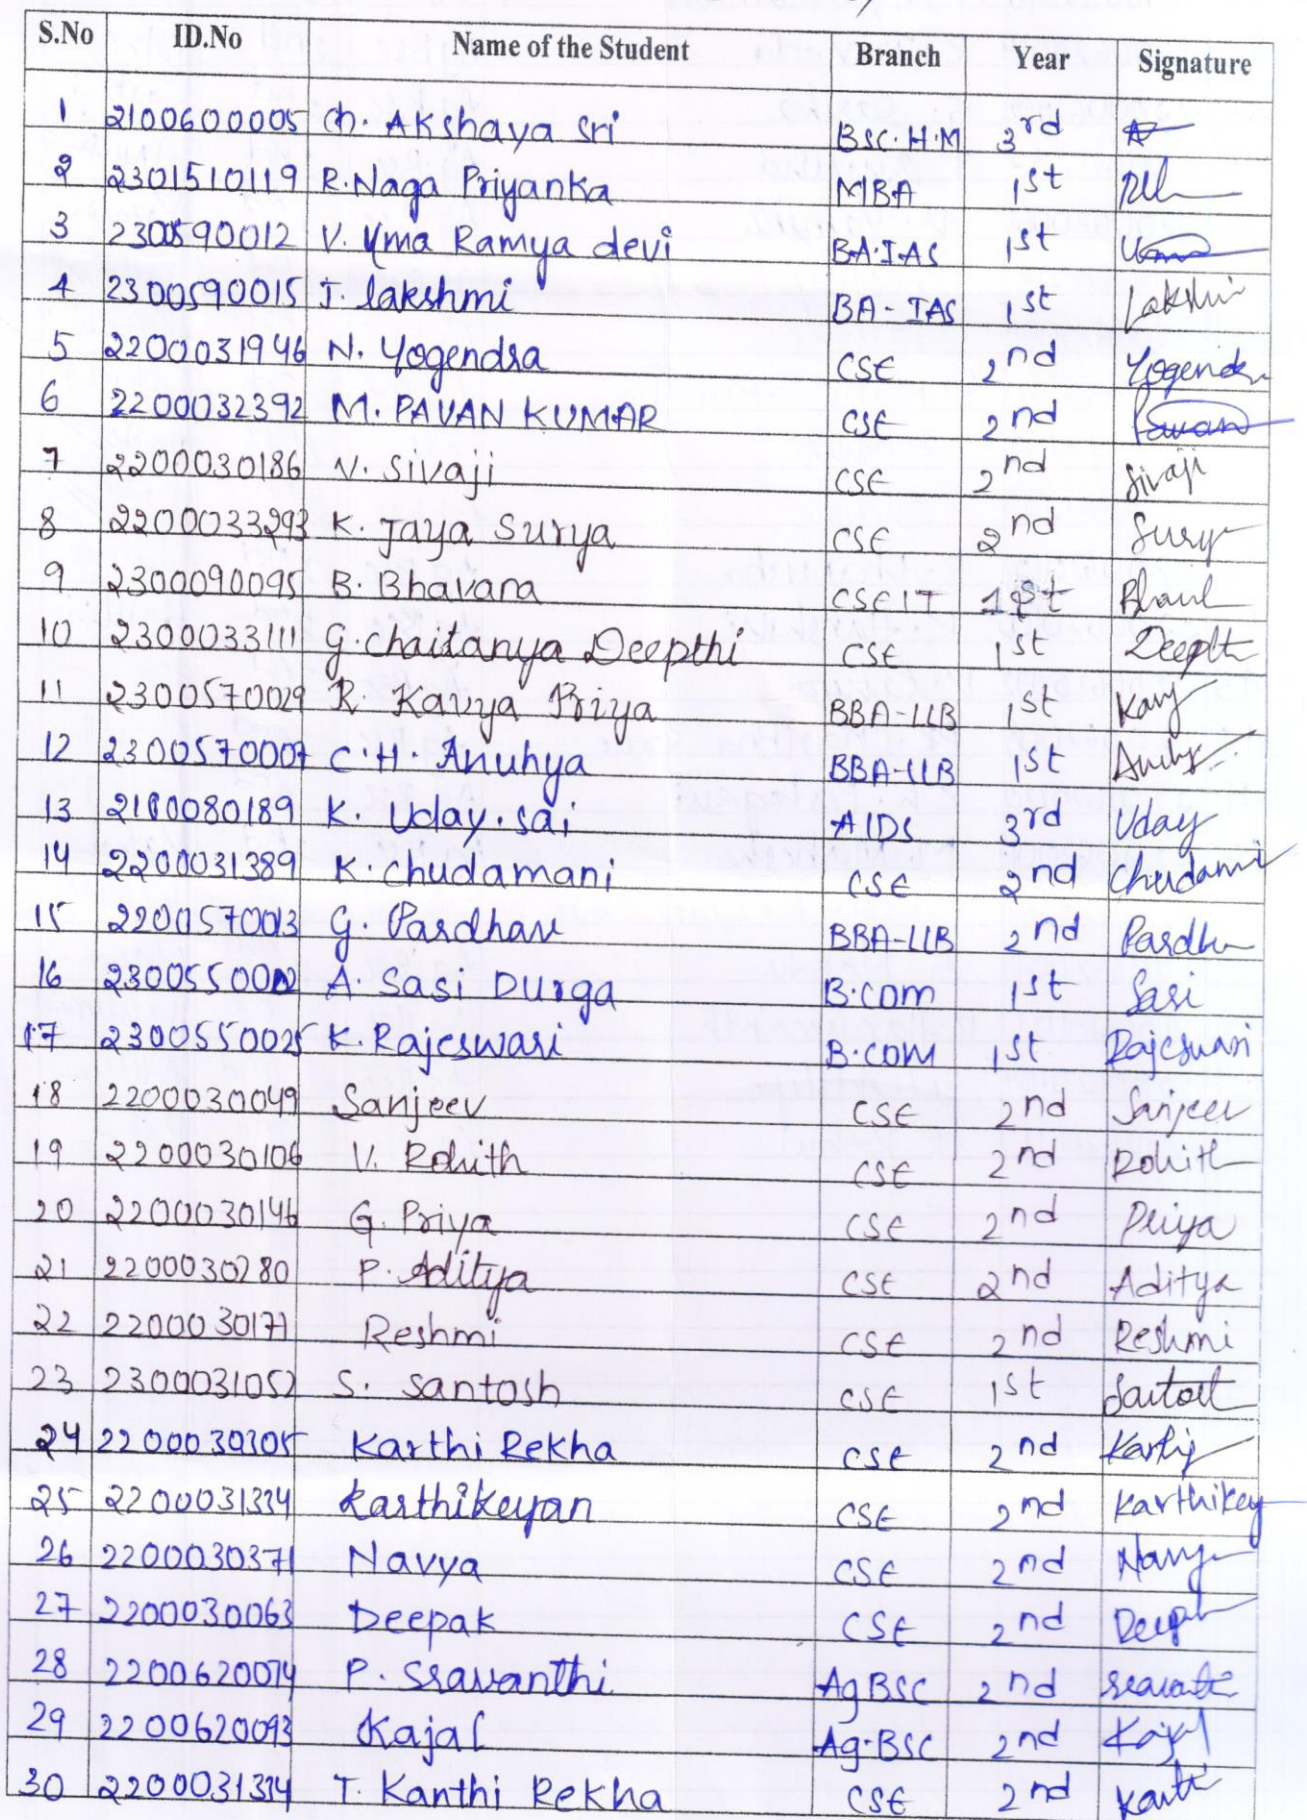 S.No ID.No Name of the Student Branch Year Signature
1 2100600005 Ch. Akshaya Sri BSC.H.M 3rd
2 2301510119 R.Naga Priyanka MBA 1st
3 2300590012 V. Uma Ramya devi BA.IAS 1st Uma
4 2300590015 T. lakshmi BA-IAS 1st Lakshmi
5 2200031946 N. Yogendra CSE 2nd Yogendra
6 2200032392 M. PAVAN KUMAR CSE 2nd Pavan
7 2200030186 V. Sivaji CSE 2nd Sivaji
8 2200033293 K. Jaya Surya CSE 2nd Surya
9 2300090095 B. Bhavana CSEIT 1st
10 2300033111 G. Chaitanya Deepthi CSE 1st Deepth
11 2300570029 R. Kavya Priya BBA-LLB 1st Kavy
12 2300570007 C.H. Anuhya BBA-LLB 1st
13 2100080189 K. Uday.sai AIDS 3rd Uday
14 2200031389 K. Chudamani CSE 2nd Chudamani
15 2200570013 G. Pardhav BBA-LLB 2nd Pardhu
16 A. Sasi Durga B.com 1st Sasi
17 2300550025 K. Rajeswari B.COM 1st Rajeswari
18 2200030049 Sanjeev CSE 2nd Sanjeev
19 2200030106 V. Rohith CSE 2nd Rohith
20 2200030146 G. Priya CSE 2nd Priya
21 2200030280 P. Aditya CSE 2nd Aditya
22 2200030171 Reshmi CSE 2nd Reshmi
23 2300031052 S. Santosh CSE 1st Santosh
24 2200030305 Karthi Rekha CSE 2nd
25 2200031334 Karthikeyan CSE 2nd Karthikey
26 2200030371 Navya CSE 2nd Navy
27 2200030063 Deepak CSE 2nd Deepak
28 2200620074 P. Sravanthi AgBSC 2nd
29 2200620093 Kajal Ag.BSC 2nd Kajal
30 2200031334 T. Kanthi Rekha CSE 2nd Kanti